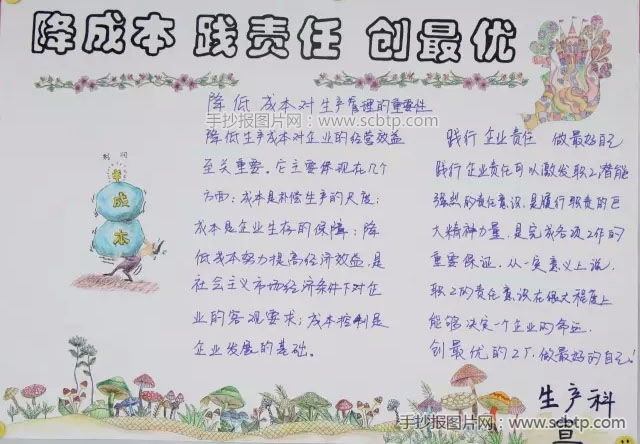 降成本 践责任 创最优
手抄报图片网：www.scbtp.com
降低成本对生产管理的重要性
降低生产成本对企业的经营效益
至关重要。它主要体现在几个
方面：成本是补偿生产的尺度；
成本是企业生存的保障；降
低成本努力提高经济效益，是
社会主义市场经济条件下对企
业的客观要求；成本控制是
企业发展的基础。
利润
成
本
践行企业责任 做最好自己
践行企业责任可以激发职工潜能
强烈的责任意识，是履行职责的巨
大精神力量，是完成各项工作的
重要保证。从一定意义上说，
职工的责任意识在很大程度上
能够决定一个企业的命运。
创最优的工厂，做最好的自己！
生产科
手抄报图片网：www.scbtp.com